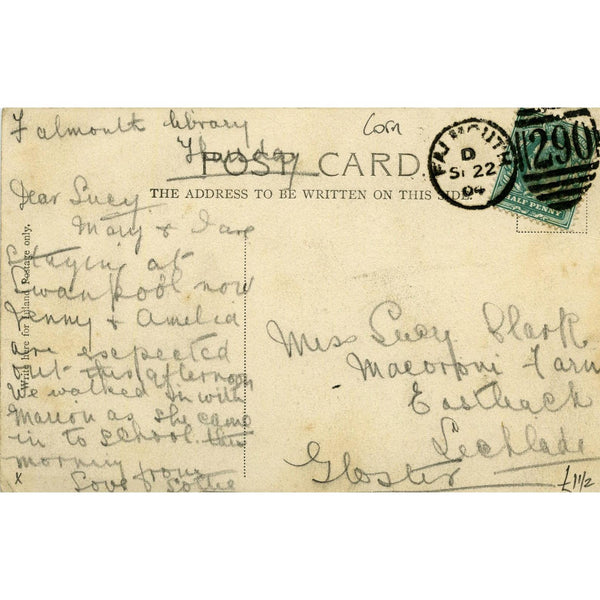 Falmouth library
Thursday
Dear Lucy
Mary & I are
Staying at
Swanpool now
Jenny & Amelia
are exepected
out this afternoon
We walked in with
Marion as she came
in to school this
morning
Love from Lottie
x
Corn
POST CARD.
THE ADDRESS TO BE WRITTEN ON THIS SIDE.
Write here for Inland Postage only.
FALMOUTH
D
SP 22
04
290
HALF PENNY
Miss Lucy Clark
Macoroni Farm
Eastleach
Lechlade
Gloster
£1½